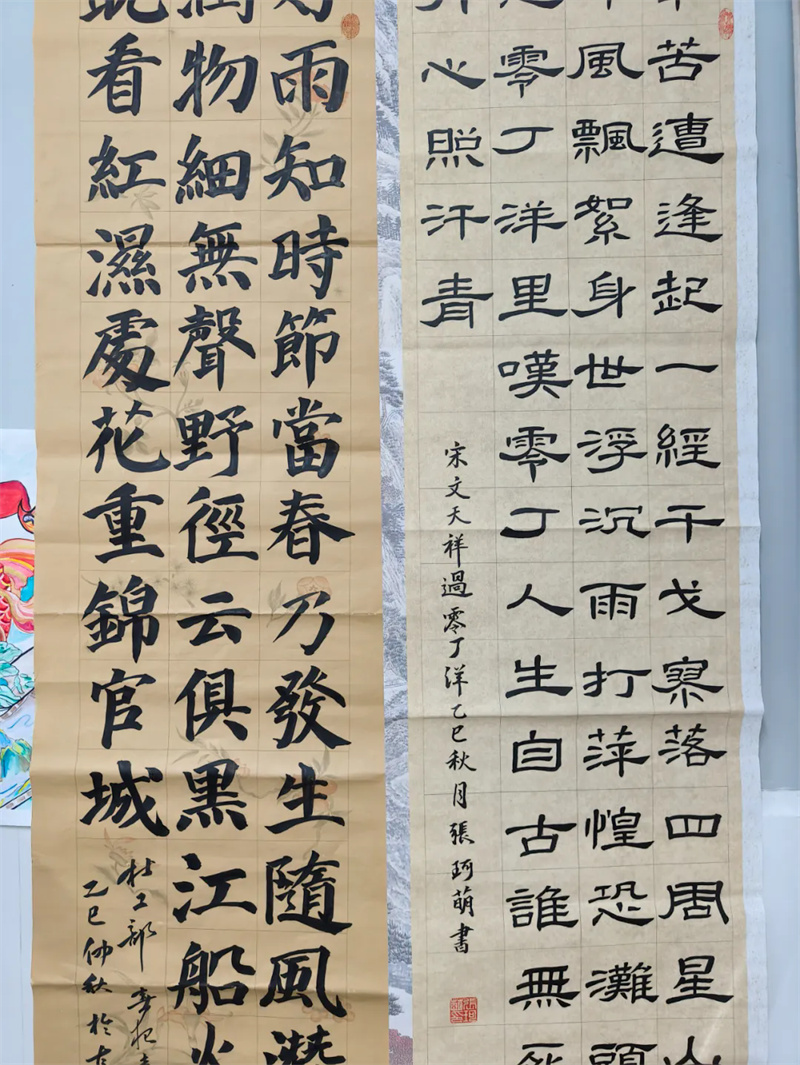 苦遭逢起一經干戈寥落四周星山
風飄絮身世浮沉雨打萍惶恐灘頭
零丁洋里嘆零丁人生自古誰無死
心照汗青
宋文天祥過零丁洋乙巳秋月張珂萌書
雨知時節當春乃發生隨風潛
潤物細無聲野徑云俱黑江船火
看紅濕處花重錦官城
杜工部 春夜
乙巳仲秋於